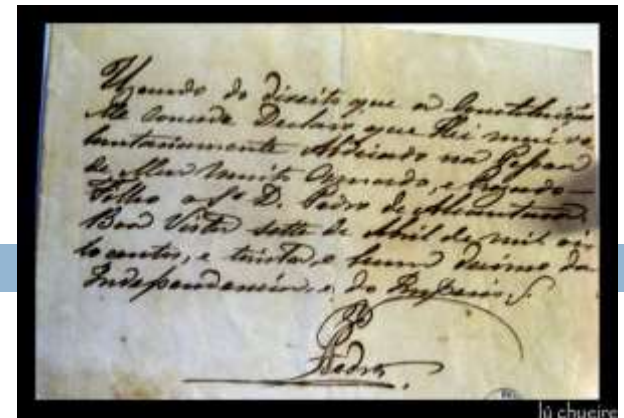 Uzando do direito que a Constituição
Me concede Declaro que Hei mui vo
luntariamente Abdicado na Pessoa
de Meu muito Amado, e Prezado
Filho o Sr. D. Pedro de Alcantara.
Boa Vista sette de Abril de mil oi
to centos, e trinta e hum decimo da
Independencia, e do Imperio
Pedro
lú chueire